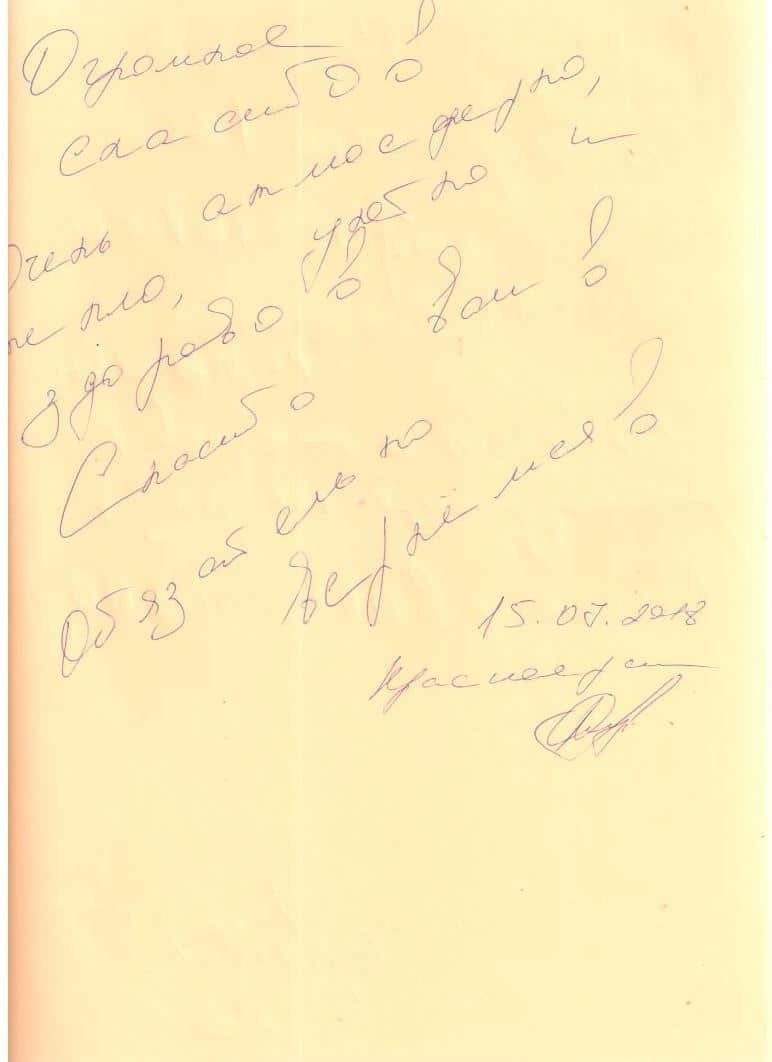 Огромное
спасибо!
Очень атмосферно,
тепло, уютно и
здорово!
Спасибо Вам!
Обязательно
вернёмся!
15.07.2018